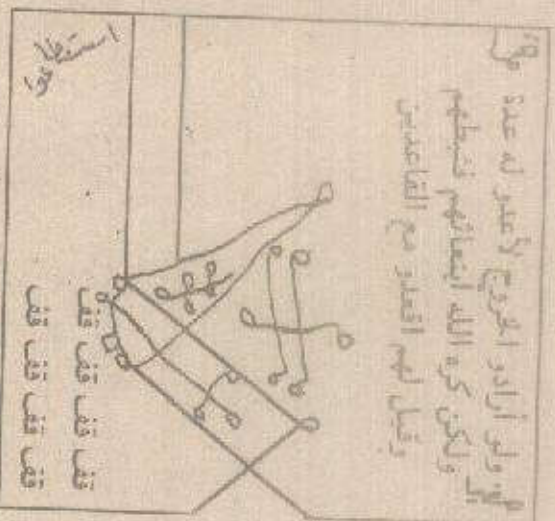 ولو أرادو الخروج لأعدو له عدة
ولكن كره الله ابنعاثهم فثبطهم
وقيل لهم اقعدو مع القاعدين
قف قف قف قف
قف قف قف قف